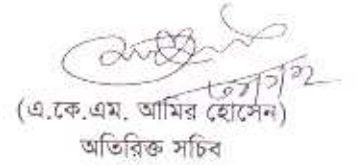 (এ.কে.এম. আমির হোসেন)
অতিরিক্ত সচিব